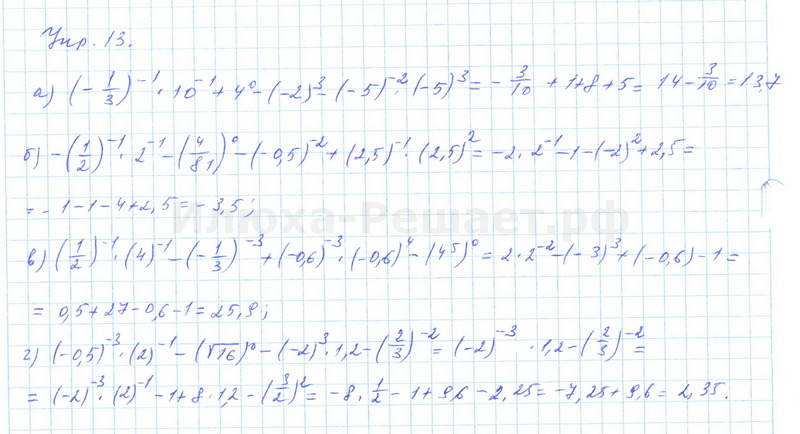 Упр. 13.
а) (-1/3)⁻¹ · 10⁻¹ + 4⁰ - (-2)³ - (-5)⁻² · (-5)³ = - 3/10 + 1+8+5 = 14 - 3/10 = 13,7
б) -(1/2)⁻¹ · 2⁻¹ - (4/81)⁰ - (-0,5)⁻² + (2,5)⁻¹ · (2,5)² = -2 · 2⁻¹ - 1 - (-2)² + 2,5 =
= - 1 - 1 - 4 + 2,5 = - 3,5 ;
Илюха-Решает.рф
в) (1/2)⁻¹ · (4)⁻¹ - (-1/3)⁻³ + (-0,6)⁻³ · (-0,6)⁴ - (45)⁰ = 2 · 2⁻² - (-3)³ + (-0,6) - 1 =
= 0,5 + 27 - 0,6 - 1 = 25,9 ;
г) (-0,5)⁻³ · (2)⁻¹ - (√16)⁰ - (-2)³ · 1,2 - (2/3)⁻² = (-2)⁻³ · 1,2 - (2/3)⁻² =
= (-2)⁻³ · (2)⁻¹ - 1 + 8 · 1,2 - (3/2)² = -8 · 1/2 - 1 + 9,6 - 2,25 = -7,25 + 9,6 = 2,35.